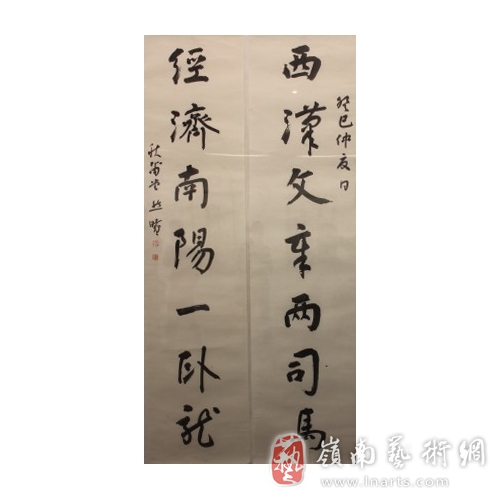 西漢文章兩司馬
癸巳仲夏月
經濟南陽一臥龍
嶺南藝術網
www.lnarts.com